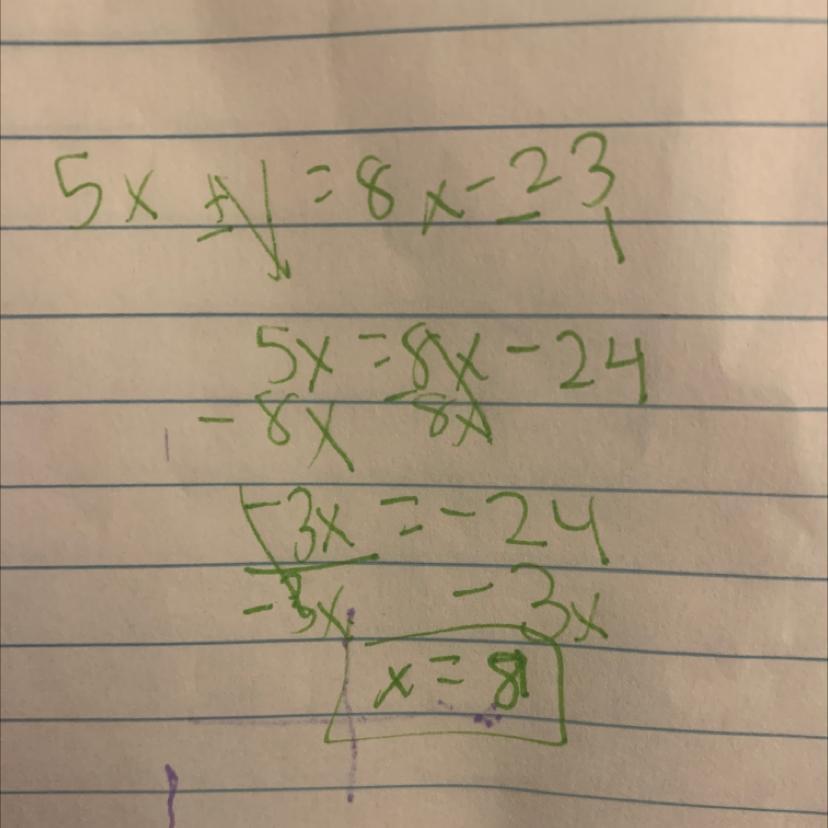 5x + 1 = 8x - 23
- 1
5x = 8x - 24
- 8x - 8x
-3x = -24
-3x -3x
x = 8